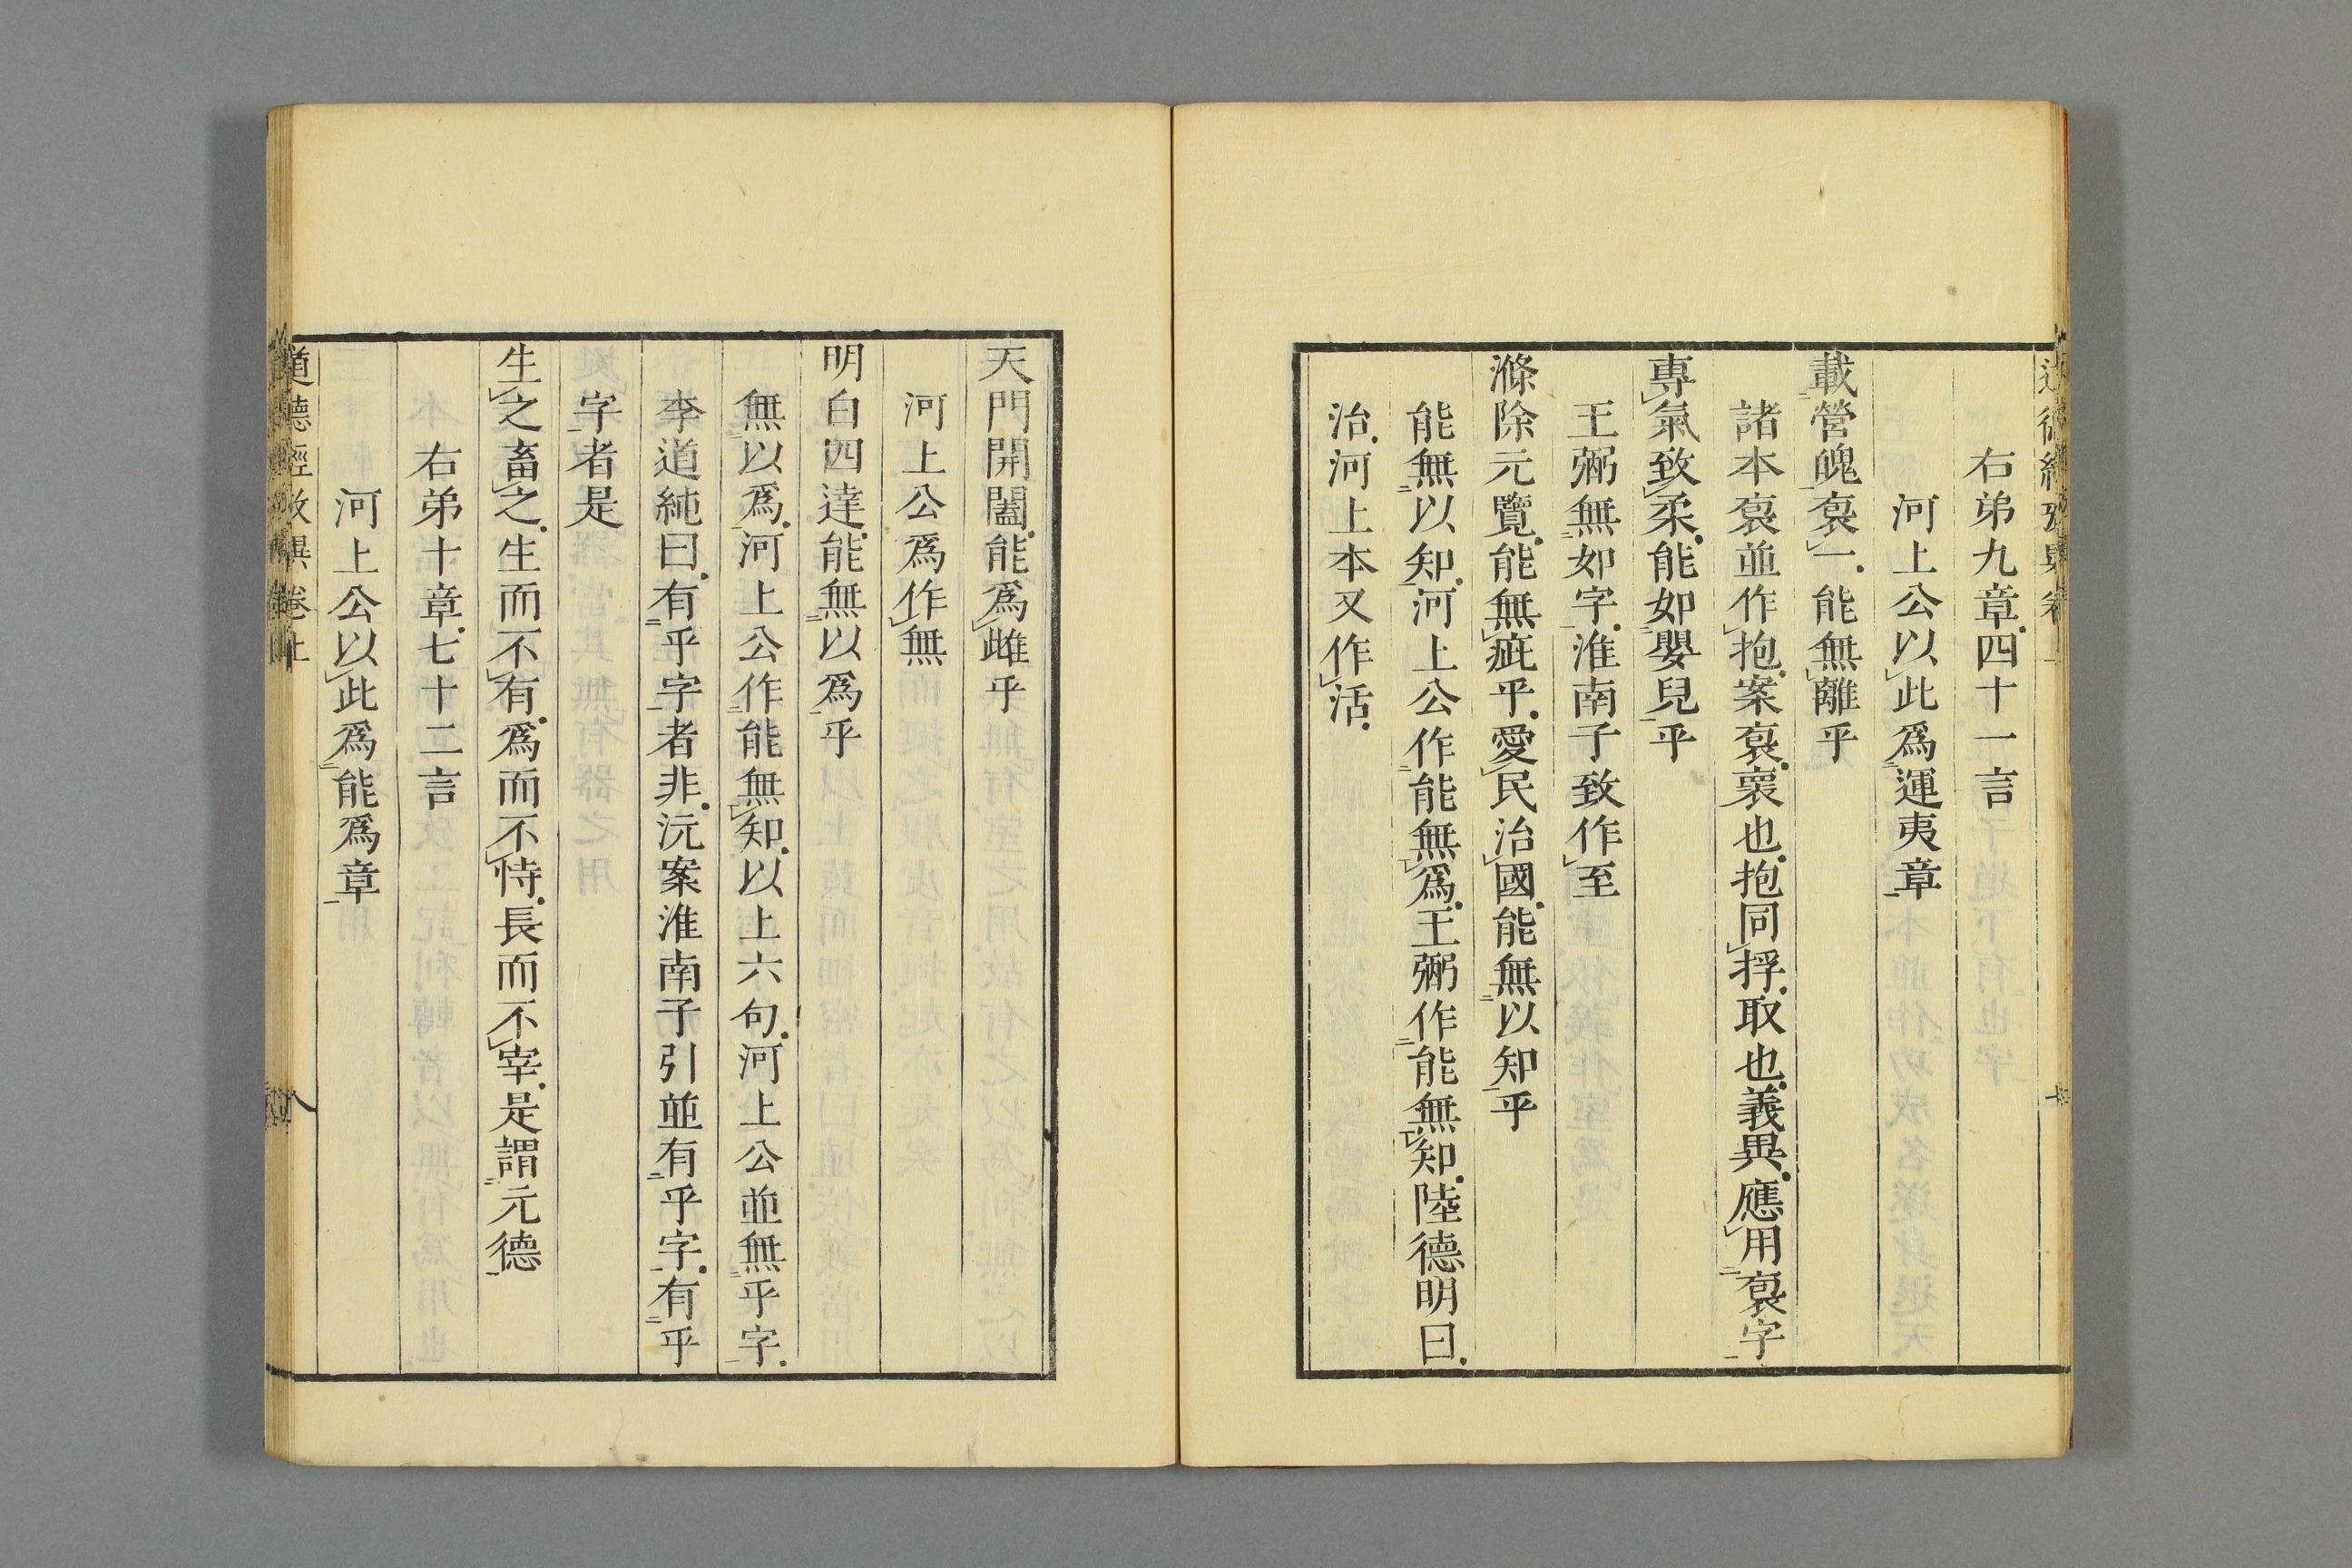 右弟九章四十一言
河上公以此爲運夷章
載營魄袌一能無離乎
諸本袌並作抱案袌褱也抱同捊取也義異應用袌字
專氣致柔能如嬰兒乎
王弼無如字淮南子致作至
滌除元覽能無疵乎愛民治國能無以知乎
能無以知河上公作能無爲王弼作能無知陸德明曰
治河上本又作活
天門開闔能爲雌乎
河上公爲作無
明白四達能無以爲乎
無以爲河上公作能無知以上六句河上公並無乎字
李道純曰有乎字者非沅案淮南子引並有乎字有乎
字者是
生之畜之生而不有爲而不恃長而不宰是謂元德
右弟十章七十二言
河上公以此爲能爲章
道德經攷異卷上
八